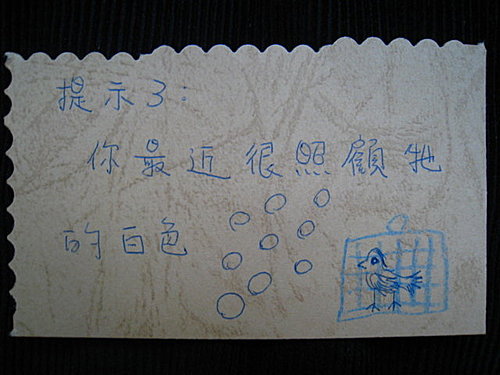 提示3:
你最近很照顧牠
的白色